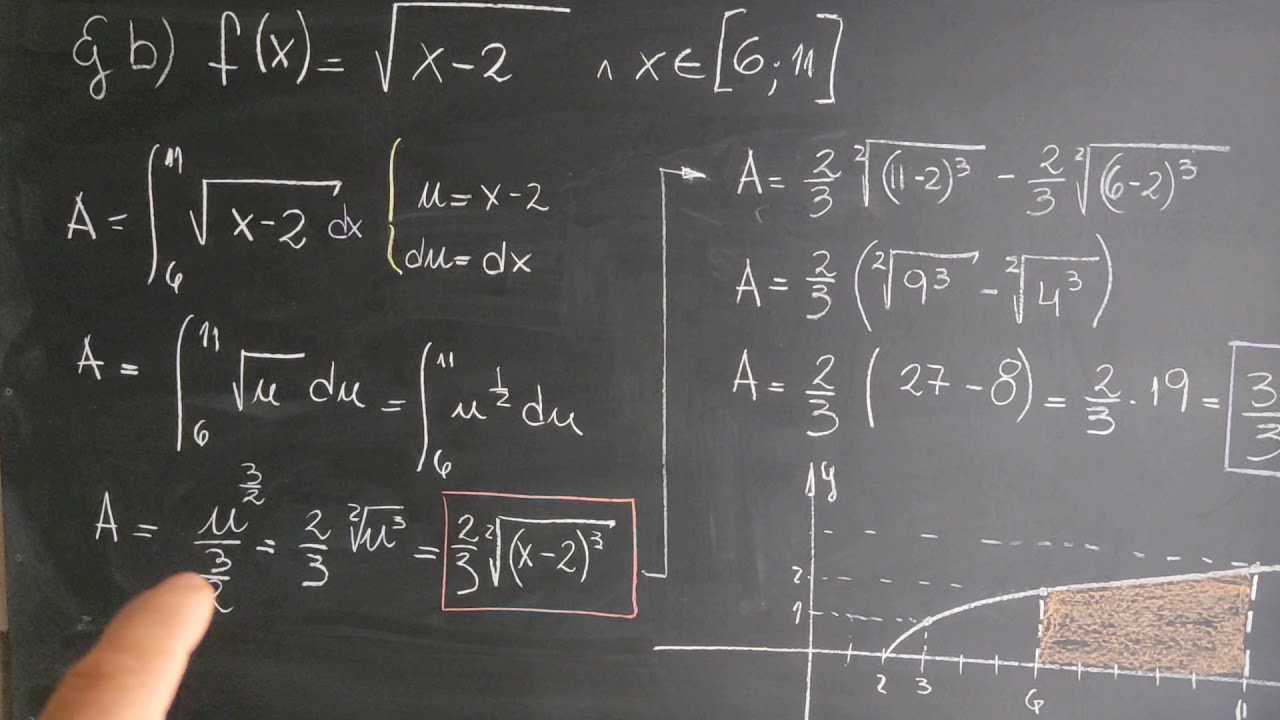 b) f(x) = √(x-2) ∧ x ∈ [6; 11]
A = ∫₆¹¹ √(x-2) dx { u = x-2
du = dx
A = ∫₆¹¹ √u du = ∫₆¹¹ u^(1/2) du
A = u^(3/2) / (3/2) = 2/3 ²√(u³) = 2/3 ²√((x-2)³)
A = 2/3 ²√((11-2)³) - 2/3 ²√((6-2)³)
A = 2/3 (²√(9³) - ²√(4³))
A = 2/3 (27 - 8) = 2/3 · 19 =
y
2
1
2 3 6 11